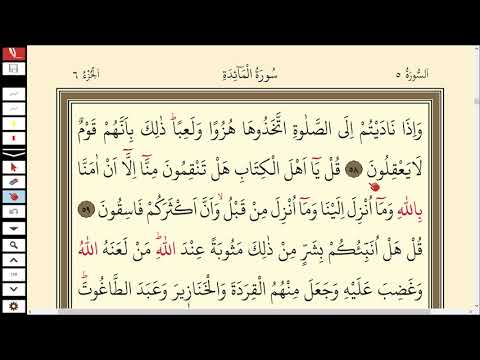 اَلسُّورَةُ ٥ سُورَةُ الْمَآئِدَةِ اَلْجُزْءُ ٦
وَاِذَا نَادَيْتُمْ اِلَى الصَّلٰوةِ اتَّخَذُوهَا هُزُوًا وَلَعِبًاۜ ذٰلِكَ بِاَنَّهُمْ قَوْمٌ
لَا يَعْقِلُونَ ﴿٥٨﴾ قُلْ يَٓا اَهْلَ الْكِتَابِ هَلْ تَنْقِمُونَ مِنَّٓا اِلَّٓا اَنْ اٰمَنَّا
بِاللّٰهِ وَمَٓا اُنْزِلَ اِلَيْنَا وَمَٓا اُنْزِلَ مِنْ قَبْلُۙ وَاَنَّ اَكْثَرَكُمْ فَاسِقُونَ ﴿٥٩﴾
قُلْ هَلْ اُنَبِّئُكُمْ بِشَرٍّ مِنْ ذٰلِكَ مَثُوبَةً عِنْدَ اللّٰهِۜ مَنْ لَعَنَهُ اللّٰهُ
وَغَضِبَ عَلَيْهِ وَجَعَلَ مِنْهُمُ الْقِرَدَةَ وَالْخَنَازِيرَ وَعَبَدَ الطَّاغُوتَۜ